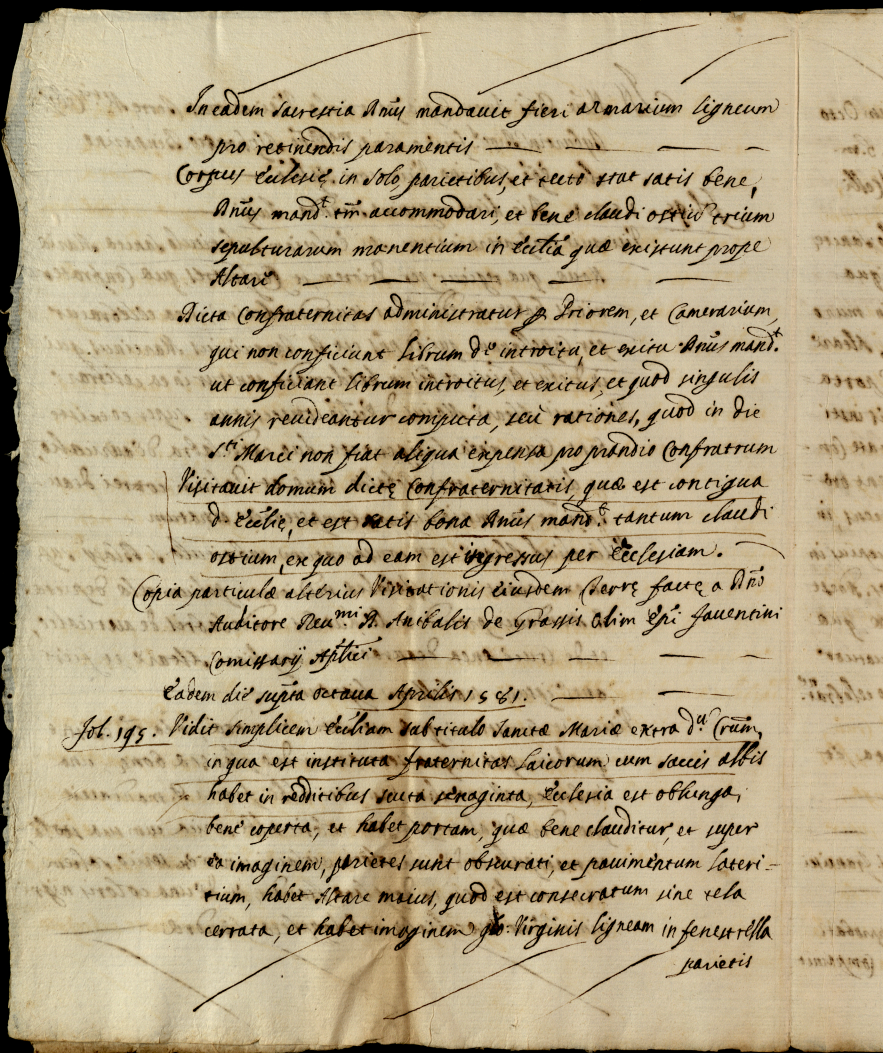 In eadem Sacrestia Dnūs mandavit fieri armarium ligneum
pro retinendis paramentis
Corpus Ecclesię in Solo, parietibus, et tecto stat satis bene,
Dnūs mandt. tm̄ accommodari, et bene claudi ostiū trium
sepulturarum manentium in Ecclīa quæ existunt prope
Altare
Dicta Confraternitas administratur p Priorem, et Camerarium,
qui non conficiunt librum de introitu, et exitu Dnūs mandt.
ut conficiant librum introitus, et exitus, et quod singulis
annis revideantur computa, seu rationes, quod in die
Sti Marci non fiat aliqua expensa pro prandio Confratrum
Visitavit domum dictę Confraternitatis, quæ est contigua
d. Ecclię, et est satis bona Dnūs mandt. tantum claudi
ostium, ex quo ad eam est ingressus per Ecclesiam.
Copia particulæ alterius Visitationis eiusdem Terrę factę a Dno
Auditore Reumi D. Anibalis de Grassis olim Epī Faventini
Comissarij Aplici
Eadem die supta octava Aprilis 1581.
Fol. 195. Vidit simplicem Eccliam sub titulo Sanctæ Mariæ extra dm Crum,
in qua est instituta fraternitas Laicorum cum saccis albis
habet in redditibus scuta sexaginta, Ecclesia est oblunga,
bene coperta, et habet portam, quæ bene clauditur, et super
ea imaginem, parietes sunt obscurati, et pavimentum lateri=
tium, habet Altare maius, quod est consecratum sine tela
cerrata, et habet imaginem glo: Virginis ligneam in fenestrella
parietis